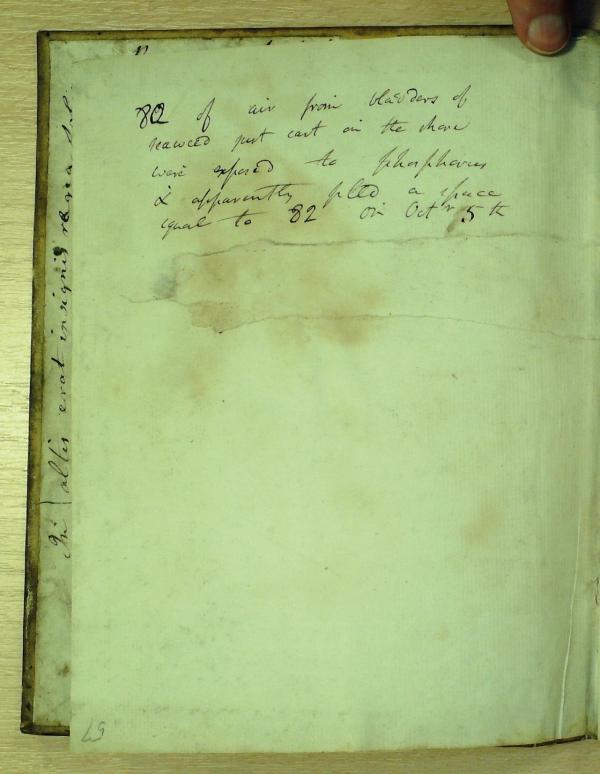 82 of air from bladders of
seaweed just cast on the shore
were exposed to phosphorus
& apparently filled a space
equal to 82 on Octr 5th
In altis erat insignis regia
57